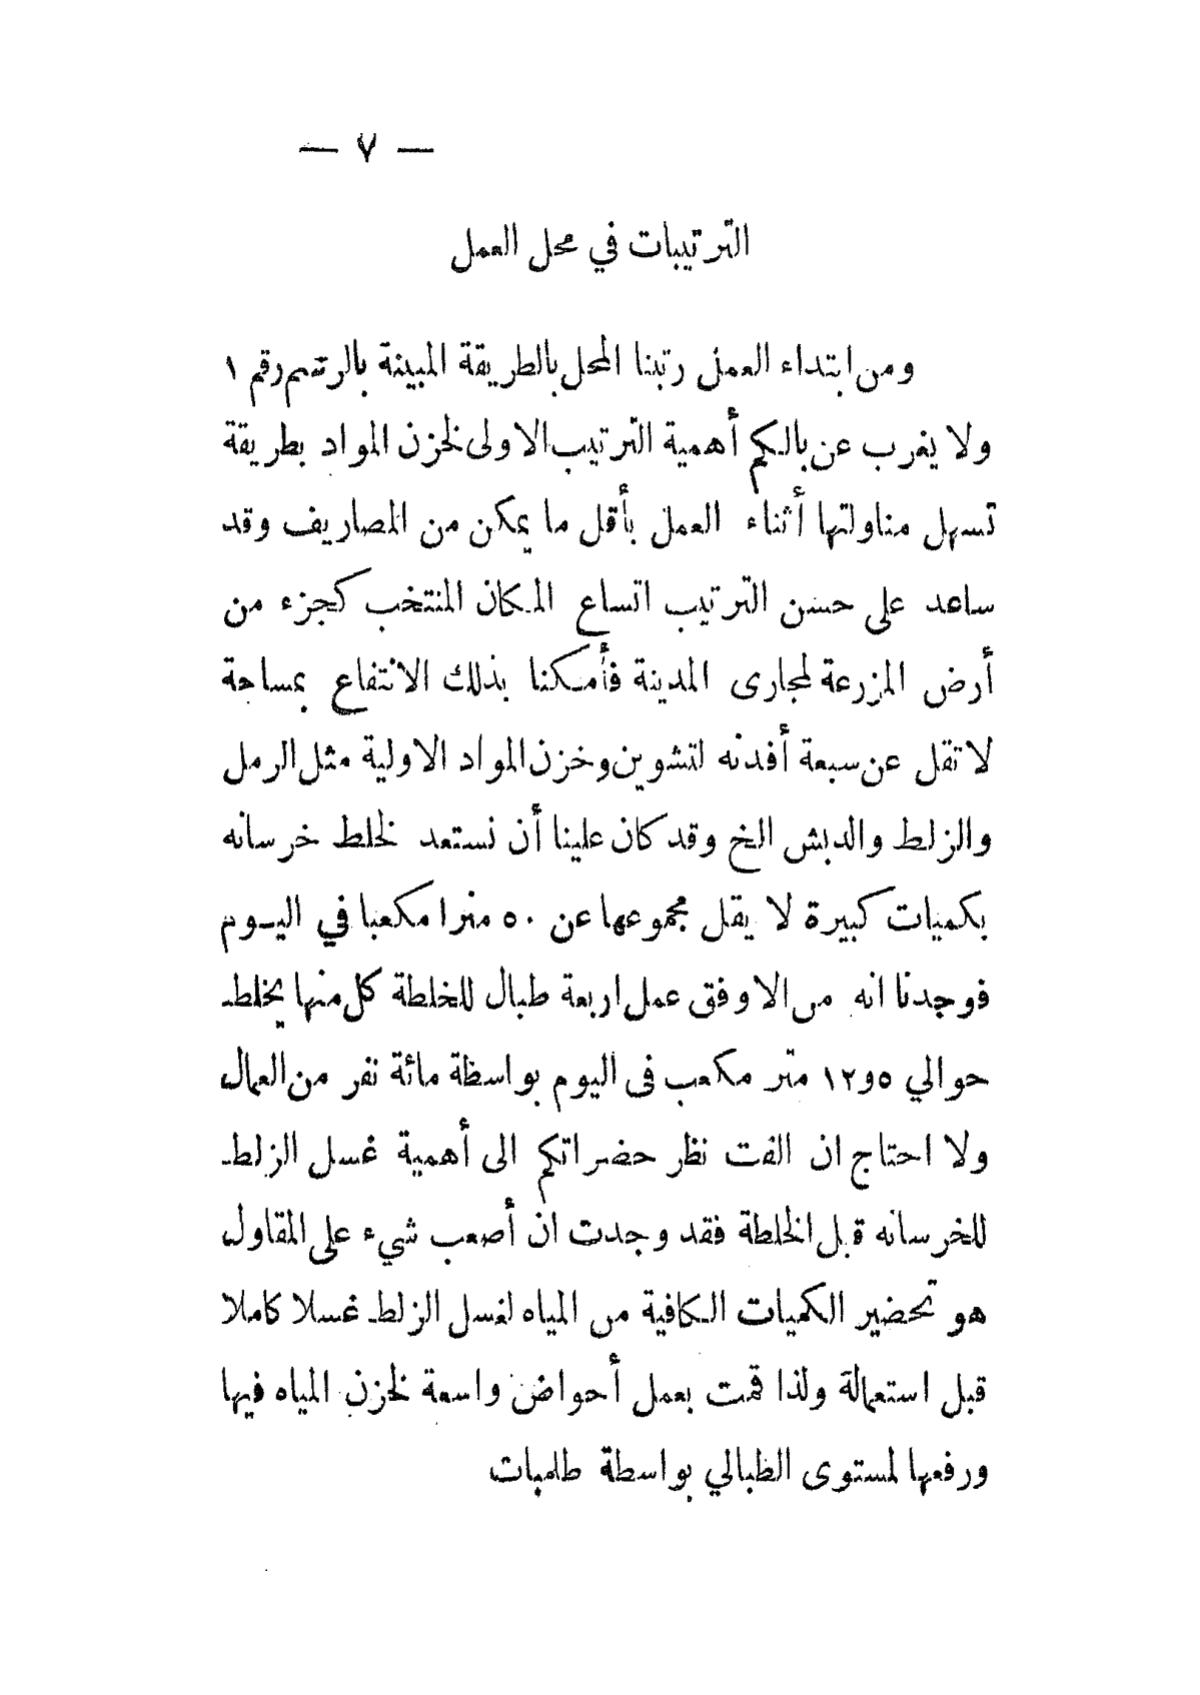 — ٧ —
الترتيبات في محل العمل
ومن ابتداء العمل رتبنا المحل بالطريقة المبينة بالرسم رقم ١
ولا يغرب عن بالكم أهمية الترتيب الاولى لخزن المواد بطريقة
تسهل مناولتها أثناء العمل بأقل ما يمكن من المصاريف وقد
ساعد على حسن الترتيب اتساع المكان المنتخب كجزء من
أرض المزرعة لمجارى المدينة فأمكنا بذلك الانتفاع بمساحة
لا تقل عن سبعة أفدنه لتشوين وخزن المواد الاولية مثل الرمل
والزلط والدبش الخ وقد كان علينا أن نستعد لخلط خرسانه
بكميات كبيرة لا يقل مجموعها عن ٥٠ مترا مكعبا في اليـوم
فوجدنا انه من الاوفق عمل اربعة طبال للخلطة كل منها يخلط
حوالي ٥و١٢ متر مكعب فى اليوم بواسطة مائة نفر من العمال
ولا احتاج ان الفت نظر حضراتكم الى أهمية غسل الزلط
للخرسانه قبل الخلطة فقد وجدت ان أصعب شيء على المقاول
هو تحضير الكميات الكافية من المياه لغسل الزلط غسلا كاملا
قبل استعمالة ولذا قمت بعمل أحواض واسعة لخزن المياه فيها
ورفعها لمستوى الطبالي بواسطة طلمبات